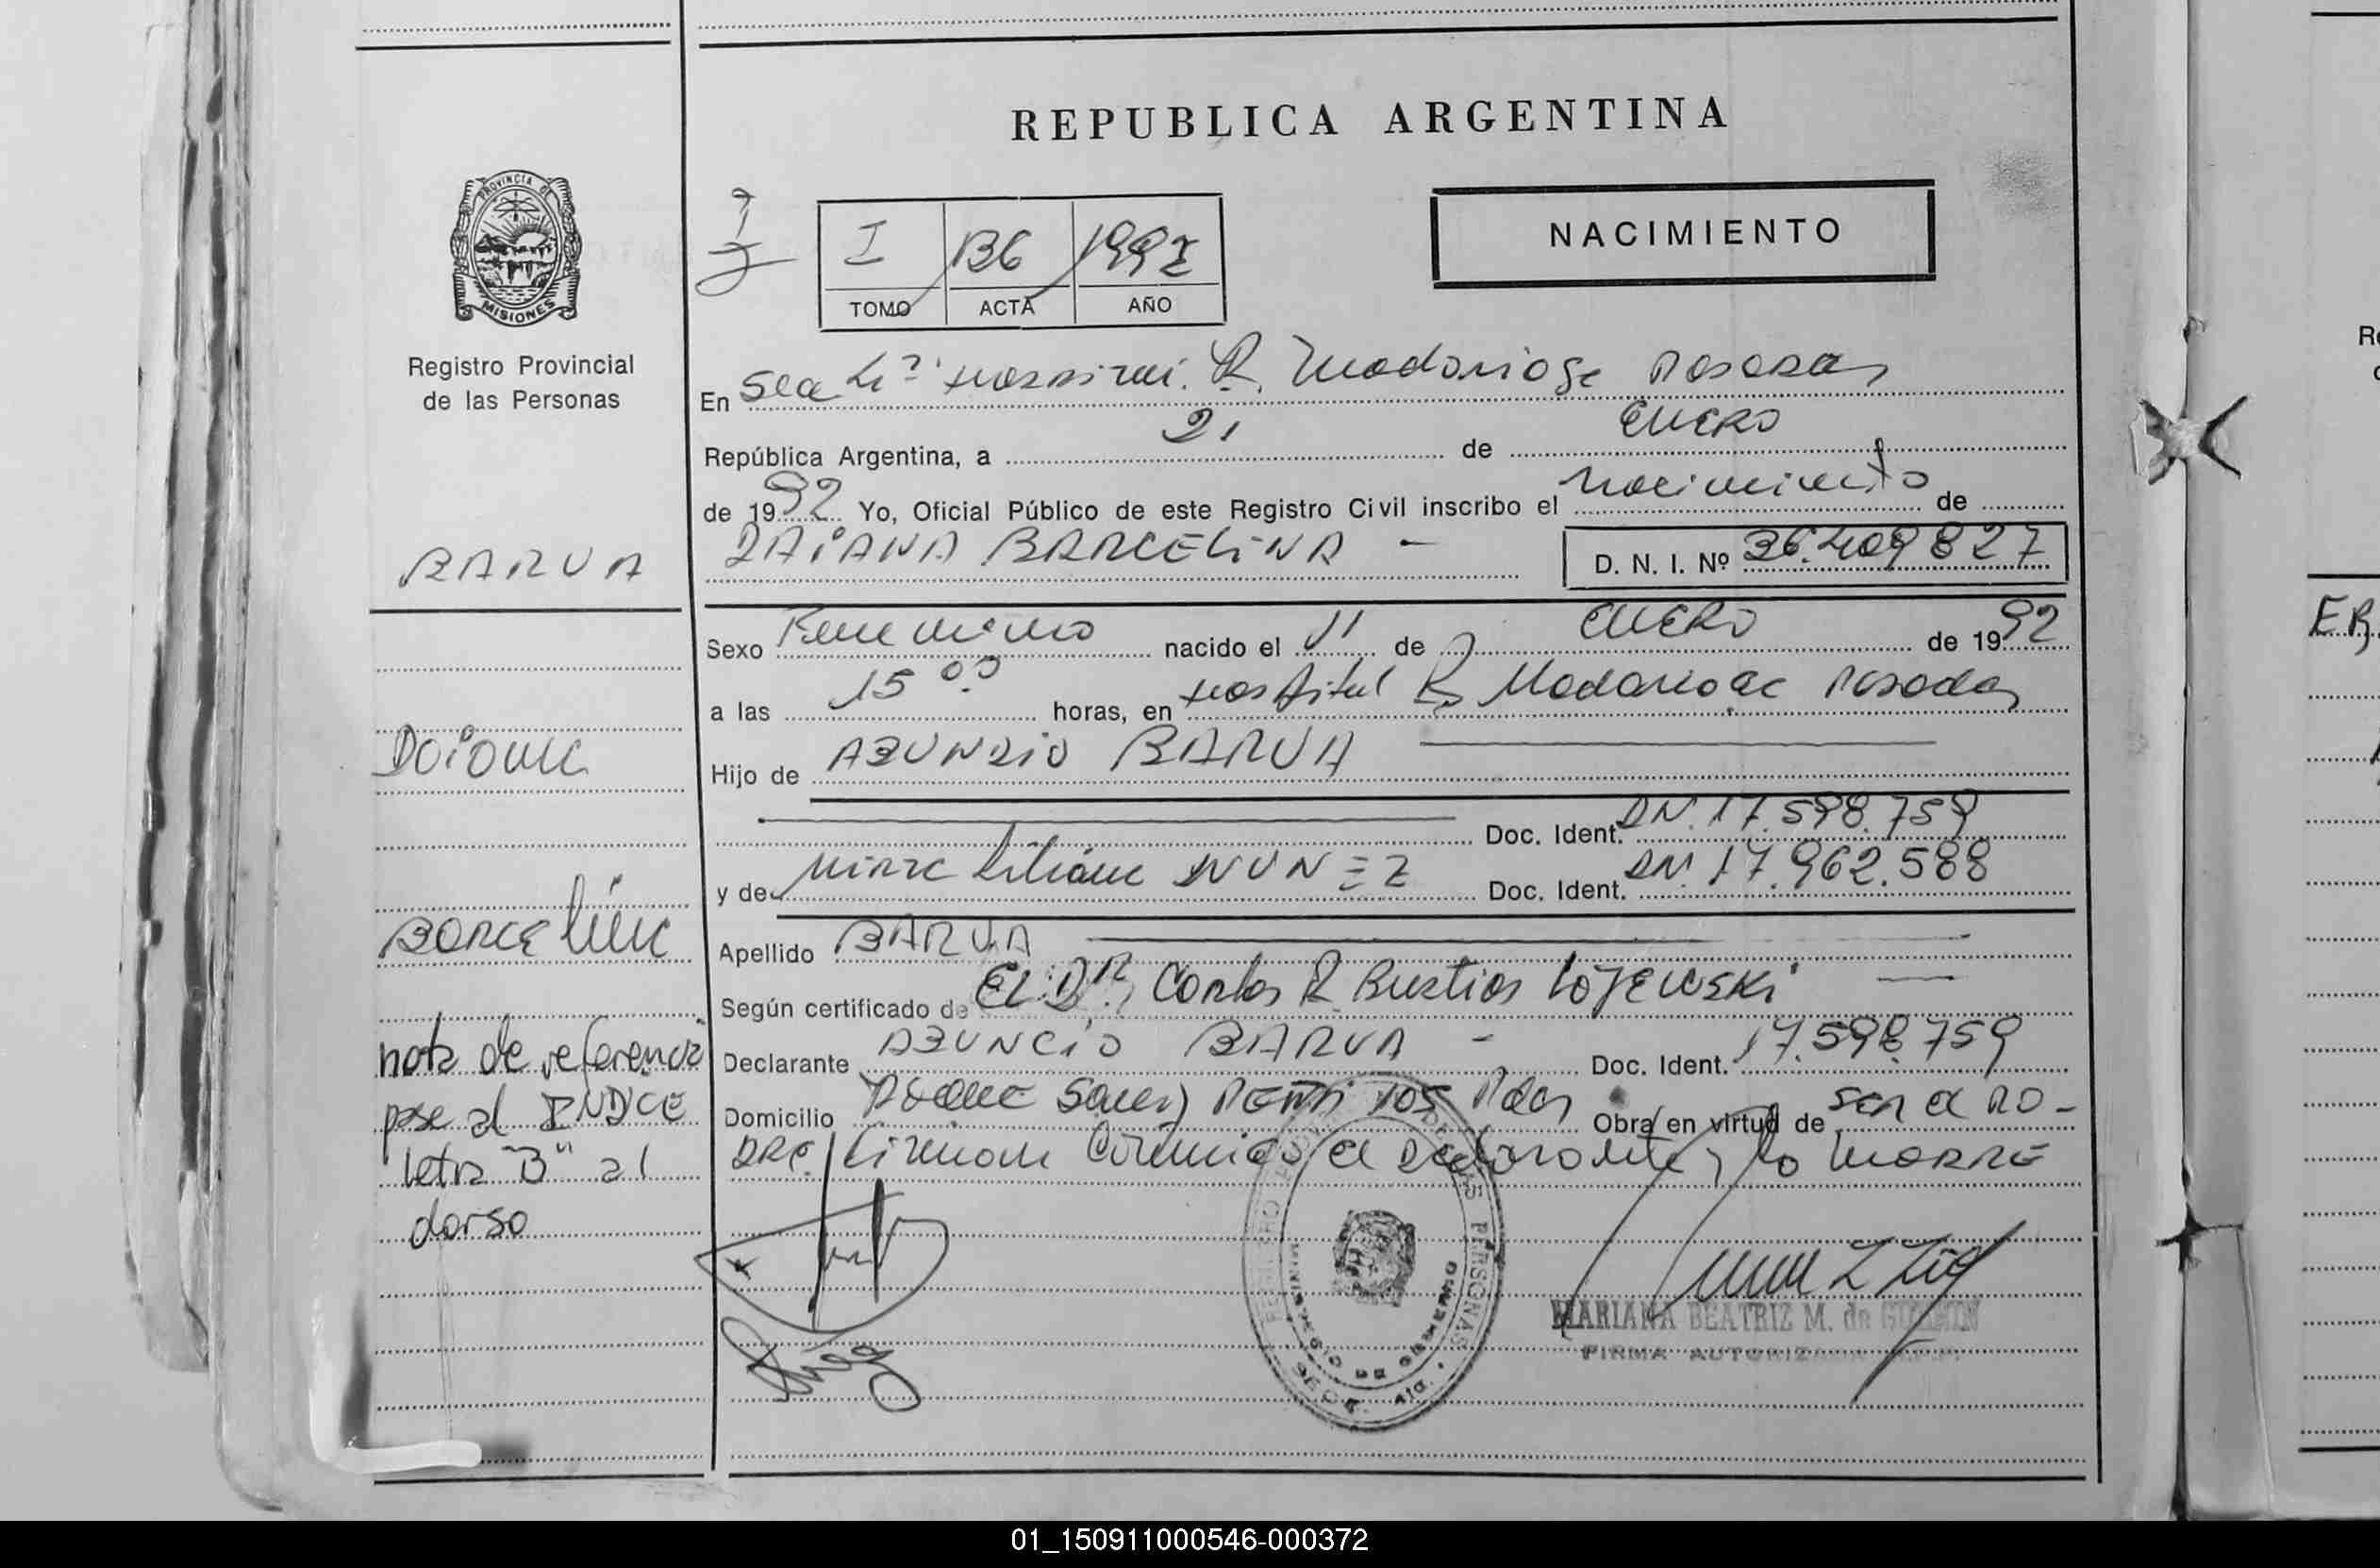 REPUBLICA ARGENTINA
PROVINCIA DE
MISIONES
Registro Provincial
de las Personas
I 136 1992
TOMO ACTA AÑO
NACIMIENTO
En Sec R. Madariaga Posadas
República Argentina, a 21 de ENERO
de 1992 Yo, Oficial Público de este Registro Civil inscribo el nacimiento de
BARUA
DAIANA BARCELINA - D. N. I. Nº 36.409827
Sexo Femenino nacido el 11 de ENERO de 1992
a las 15 00 horas, en Hospital R. Madariaga Posadas
Daiana
Hijo de ASUNCIO BARUA
Doc. Ident. DN. 17.598.759
y de Liliana NUNEZ Doc. Ident. DN. 17.962.588
Barcelina
Apellido BARUA
Según certificado de EL DR. Carlos R Bustios LOJEWSKI
nota de referencia
Declarante ASUNCIO BARUA - Doc. Ident. 17.598.759
pase al INDICE
Domicilio ROQUE Saenz PEÑA 105 Pdas Obra en virtud de ser el PA-
letra "B" al
DRE. el declarante y la MADRE
dorso
REGISTRO DE LAS PERSONAS
MINISTERIO DE GOBIERNO
MARIANA BEATRIZ M. de
FIRMA AUTORIZADA
ER
01_150911000546-000372